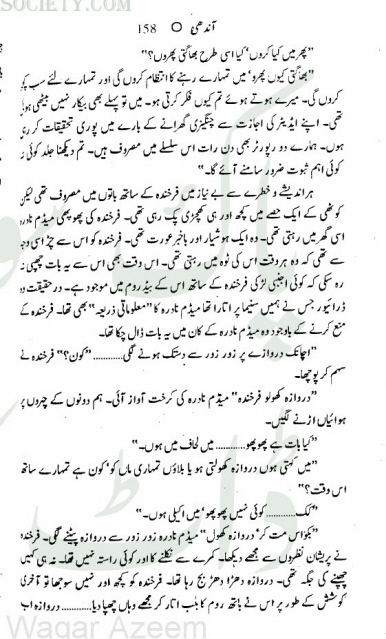 SOCIETY.COM
آندھی O 158
"پھر میں کیا کروں، کیا اسی طرح بھاگتی پھروں؟"
"بھاگتی کیوں پھرو، میں تمہارے رہنے کا انتظام کروں گی اور تمہارے لئے سب کچھ
کروں گی۔ میرے ہوتے ہوئے تم کیوں فکر کرتی ہو۔ میں تو پہلے بھی بیکار نہیں بیٹھی ہوئی
تھی۔ اپنے ایڈیٹر کی اجازت سے چنگیزی گھرانے کے بارے میں پوری تحقیقات کر رہی
ہوں۔ ہمارے دو رپورٹر بھی دن رات اس سلسلے میں مصروف ہیں۔ تم دیکھنا جلد کوئی نہ
کوئی اہم ثبوت ضرور سامنے آئے گا۔"
ہر اندیشے و خطرے سے بے نیاز میں فرخندہ کے ساتھ باتوں میں مصروف تھی لیکن
کوٹھی کے ایک حصے میں کچھ اور ہی کھچڑی پک رہی تھی۔ فرخندہ کی پھوپھی میڈم نادرہ
اسی گھر میں رہتی تھی۔ وہ ایک ہوشیار اور باخبر عورت تھی۔ فرخندہ کو اس سے چڑ اسی وجہ
سے تھی کہ وہ ہر وقت اس کی ٹوہ میں رہتی تھی۔ اس وقت بھی اس سے یہ بات چھپی نہ
رہ سکی کہ کوئی اجنبی لڑکی فرخندہ کے ساتھ اس کے بیڈ روم میں موجود ہے۔ درحقیقت وہ
ڈرائیور جس نے ہمیں سنیما پر اتارا تھا میڈم نادرہ کا "معلوماتی ذریعہ" بھی تھا۔ فرخندہ کے
منع کرنے کے باوجود وہ میڈم نادرہ کے کان میں یہ بات ڈال چکا تھا۔
اچانک دروازے پر زور زور سے دستک ہونے لگی............ "کون؟" فرخندہ نے
سہم کر پوچھا۔
"دروازہ کھولو فرخندہ" میڈم نادرہ کی کرخت آواز آئی۔ ہم دونوں کے چہروں پر
ہوائیاں اڑنے لگیں۔
"کیا بات ہے پھوپھو............ میں لحاف میں ہوں۔"
"میں کہتی ہوں دروازہ کھولتی ہو یا بلاؤں تمہاری ماں کو، کون ہے تمہارے ساتھ
اس وقت؟"
"کک............ کوئی نہیں پھوپھو، میں اکیلی ہوں۔"
"بکواس مت کر، دروازہ کھول" میڈم نادرہ زور زور سے دروازہ پیٹنے لگی۔ فرخندہ
نے پریشان نظروں سے مجھے دیکھا۔ کمرے سے نکلنے کا اور کوئی راستہ نہیں تھا۔ نہ ہی کہیں
چھپنے کی جگہ تھی۔ دروازہ دھڑا دھڑ بج رہا تھا۔ فرخندہ کو کچھ اور نہیں سوجھا تو آخری
کوشش کے طور پر اس نے باتھ روم کا بلب اتار کر مجھے وہاں چھپا دیا............ دروازہ اب
Waqar Azeem